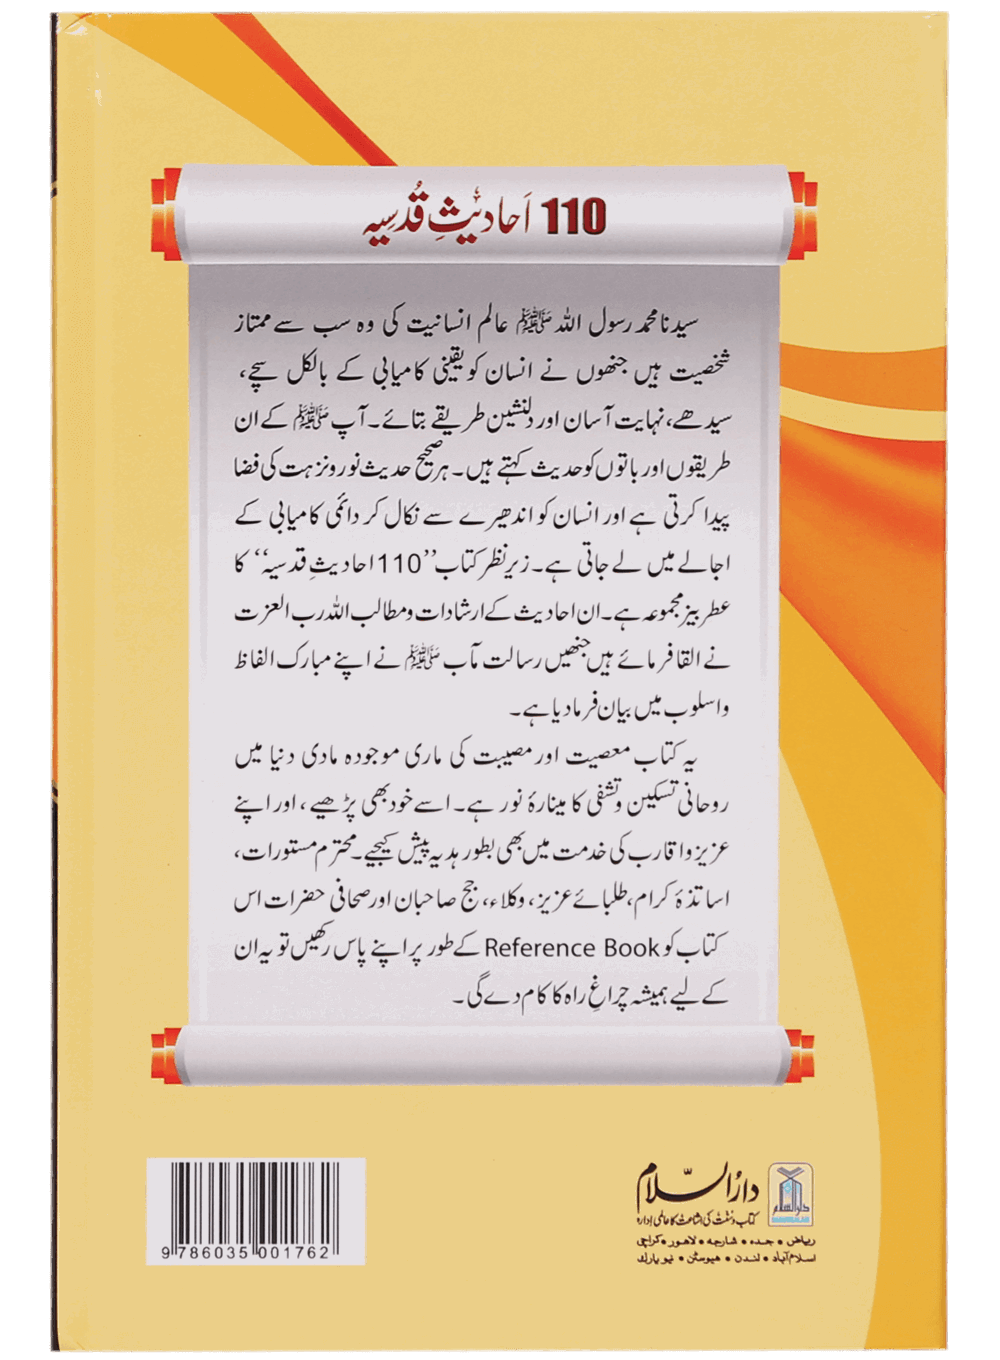 110 اَحادیثِ قُدسِیہ
سیدنا محمد رسول اللہ ﷺ عالم انسانیت کی وہ سب سے ممتاز
شخصیت ہیں جنھوں نے انسان کو یقینی کامیابی کے بالکل سچے،
سیدھے، نہایت آسان اور دلنشین طریقے بتائے۔ آپ ﷺ کے ان
طریقوں اور باتوں کو حدیث کہتے ہیں۔ ہر صحیح حدیث نور و نزہت کی فضا
پیدا کرتی ہے اور انسان کو اندھیرے سے نکال کر دائمی کامیابی کے
اجالے میں لے جاتی ہے۔ زیر نظر کتاب ’’110 احادیثِ قدسیہ‘‘ کا
عطر بیز مجموعہ ہے۔ ان احادیث کے ارشادات و مطالب اللہ رب العزت
نے القا فرمائے ہیں جنھیں رسالت مآب ﷺ نے اپنے مبارک الفاظ
و اسلوب میں بیان فرما دیا ہے۔
یہ کتاب معصیت اور مصیبت کی ماری موجودہ مادی دنیا میں
روحانی تسکین و تشفی کا مینارۂ نور ہے۔ اسے خود بھی پڑھیے، اور اپنے
عزیز و اقارب کی خدمت میں بھی بطور ہدیہ پیش کیجیے۔ محترم مستورات،
اساتذۂ کرام، طلبائے عزیز، وکلاء، جج صاحبان اور صحافی حضرات اس
کتاب کو Reference Book کے طور پر اپنے پاس رکھیں تو یہ ان
کے لیے ہمیشہ چراغِ راہ کا کام دے گی۔
دارُالسّلام
کتاب و سنت کی اشاعت کا عالمی ادارہ
ریاض • جدہ • شارجہ • لاہور • کراچی
اسلام آباد • لندن • ہیوسٹن • نیو یارک
دارالسلام
DARUSSALAM
9 786035 001762